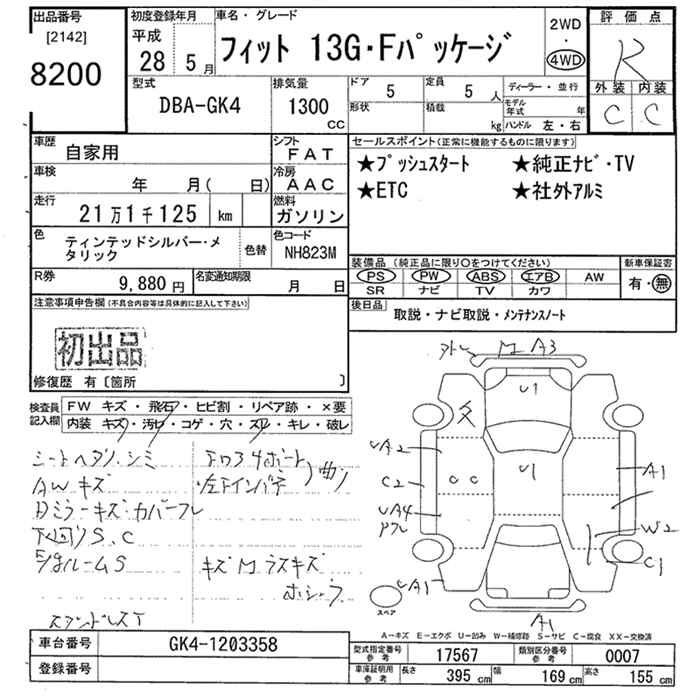 出品番号
[2142]
8200
初度登録年月
平成
28 5 月
車名・グレード
フィット 13G・Fパッケージ
2WD
・
4WD
評価点
R
外装 内装
C C
型式
DBA-GK4
排気量
1300
CC
ドア 5
定員 5 人
形状
積載 kg
ディーラー・並行
モデル年式 年
ハンドル 左・右
車歴 自家用
シフト FAT
車検 年 月( 日)
冷房 AAC
走行 21万1千125 km
燃料 ガソリン
色 ティンテッドシルバー・メタリック
色替
色コード NH823M
R券 9,880 円
名変通知期限 月 日
セールスポイント(正常に機能するものに限ります)
★プッシュスタート ★純正ナビ・TV
★ETC ★社外アルミ
装備品 (純正品に限り○をつけてください)
新車保証書
PS PW ABS エアB AW
有・無
SR ナビ TV カワ
後日品
取説・ナビ取説・メンテナンスノート
注意事項申告欄(不具合内容等は具体的に記入して下さい)
初出品
修復歴 有〔箇所 〕
検査員記入欄
FW キズ・飛石・ヒビ割・リペア跡・×要
内装 キズ・汚れ・コゲ・穴・スレ・キレ・破レ
シートヘタリ、シミ
AWキズ
Dミラーキズ・カバーフレ
下回りS、C
E/gルームS
キズM ラスキズ
外レ M A3
U1
UA2
C2
C C
U1
A1
UA4
W2
C1
UA1
A1
スペア
A-キズ E-エクボ U-凹み W-補修跡 S-サビ C-腐食 XX-交換済
車台番号 GK4-1203358
登録番号
型式指定番号 参考 17567
類別区分番号 参考 0007
車庫証明用 参考 長さ 395 cm 幅 169 cm 高さ 155 cm